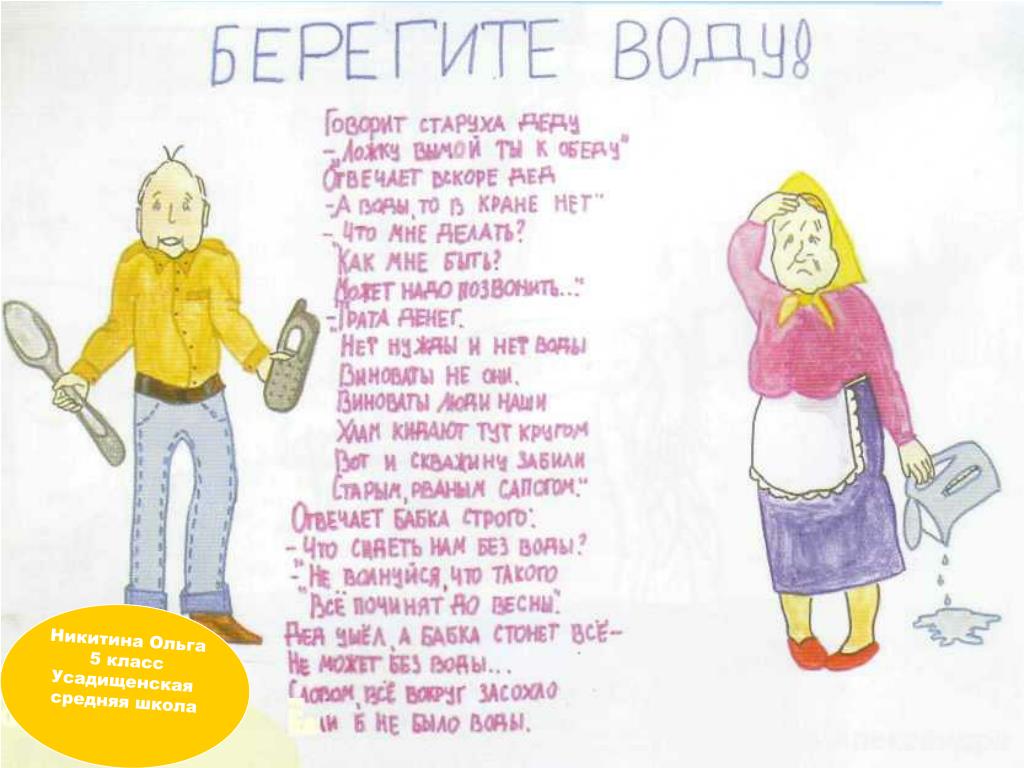 БЕРЕГИТЕ ВОДУ!
Говорит старуха деду
-„Ложку вымой ты к обеду"
Отвечает вскоре дед
-А воды, то в кране нет"
-„Что мне делать?
Как мне быть?
Может надо позвонить..."
-„Трата денег.
Нет нужды и нет воды
Виноваты не они.
Виноваты люди наши
Хлам кидают тут кругом
Вот и скважину забили
Старым, рваным сапогом."
Отвечает бабка строго:
-Что сидеть нам без воды?
-"Не волнуйся, что такого
"Всё починят до весны".
Дед ушёл, а бабка стонет всё-
Не может без воды...
Словом, всё вокруг засохло
ли б не было воды.
Никитина Ольга
5 класс
Усадищенская
средняя школа
Александра